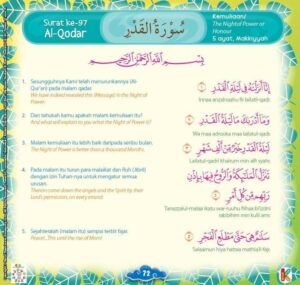 Surat ke-97
Al-Qodar
سُورَةُ الْقَدْرِ
Kemuliaan/
The Night of Power or
Honour
5 ayat, Makkiyyah
بِسْمِ اللهِ الرَّحْمٰنِ الرَّحِيْمِ
1. Sesungguhnya Kami telah menurunkannya (Al-
Qur'an) pada malam qadar.
We have indeed revealed this (Message) in the Night of
Power.
اِنَّآ اَنْزَلْنٰهُ فِيْ لَيْلَةِ الْقَدْرِ
Innaa anzalnaahu fii lailatil-qadri
2. Dan tahukah kamu apakah malam kemuliaan itu?
And what will explain to you what the Night of Power is?
وَمَآ اَدْرٰىكَ مَا لَيْلَةُ الْقَدْرِ
Wa maa adrooka maa lailatul-qadri
3. Malam kemuliaan itu lebih baik daripada seribu bulan.
The Night of Power is better than a thousand Months.
لَيْلَةُ الْقَدْرِ خَيْرٌ مِّنْ اَلْفِ شَهْرٍ
Lailatul-qadri khairum min alfi syahr
4. Pada malam itu turun para malaikat dan Roh (Jibril)
dengan izin Tuhan-nya untuk mengatur semua
urusan.
Therein come down the angels and the Spirit by their
Lord's permission, on every errand:
تَنَزَّلُ الْمَلٰۤىِٕكَةُ وَالرُّوْحُ فِيْهَا بِاِذْنِ
رَبِّهِمْ مِّنْ كُلِّ اَمْرٍ
Tanazzalul-malaa ikatu war ruuhu fiihaa bi'idzni
rabbihim min kulli amr
5. Sejahteralah (malam itu) sampai terbit fajar.
Peace!...This until the rise of Morn!
سَلٰمٌ هِيَ حَتّٰى مَطْلَعِ الْفَجْرِ
Salaamun hiya hattaa mathla'il-fajr
72